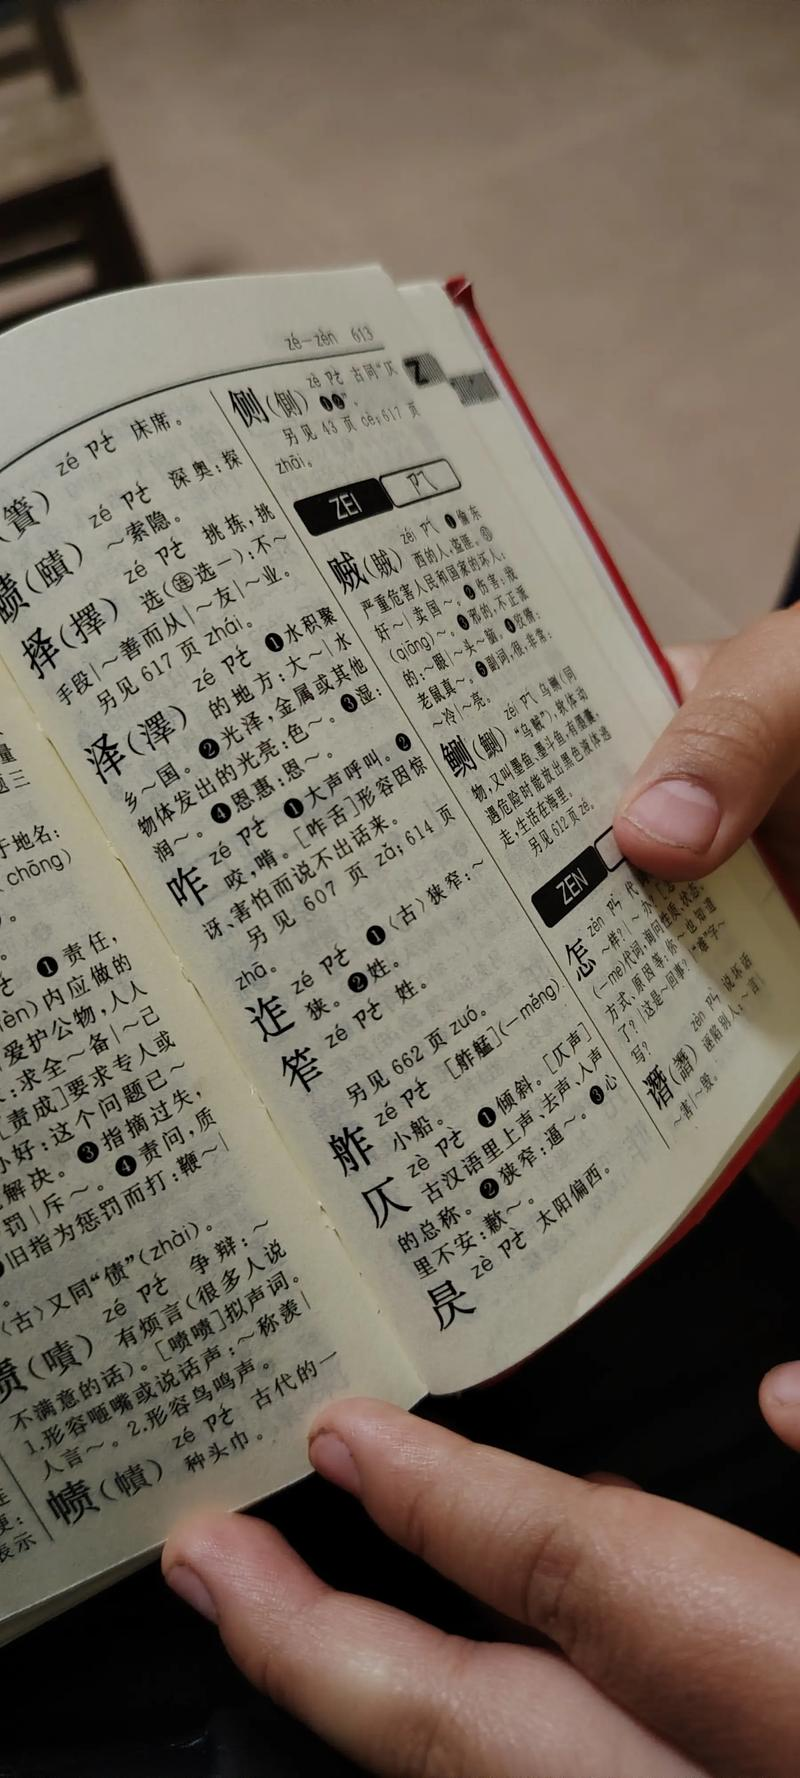 量
题三
于地名:
chōng)
❶责任,
内应做的
爱护公物,人人
:求全～备|～己
[责成]要求专人或
办好:这个问题已～
解决。❸指摘过失,
罚|斥～。❹责问,质
旧指为惩罚而打:鞭～|
〈古〉又同“债”(zhài)。
啧(嘖) zé ㄗㄜˊ 争辩:～
有烦言(很多人说
不满意的话)。[啧啧]拟声词。
1.形容咂嘴或说话声:～称羡|
人言～。2.形容鸟鸣声。
帻(幘) zé ㄗㄜˊ 古代的一
种头巾。
表示
zé—zèn 613
(簀) zé ㄗㄜˊ 床席。
赜(賾) zé ㄗㄜˊ 深奥:探
～索隐。
择(擇) zé ㄗㄜˊ 挑拣,挑
选(㊣选一):不～
手段|～善而从|～友|～业。
另见 617 页 zhái。
泽(澤) zé ㄗㄜˊ ❶水积聚
的地方:大～|水
乡～国。❷光泽,金属或其他
物体发出的光亮:色～。❸湿:
润～。❹恩惠:恩～。
咋 zé ㄗㄜˊ ❶大声呼叫。❷
咬,啃。[咋舌]形容因惊
讶、害怕而说不出话来。
另见 607 页 zǎ;614 页
zhā。
迮 zé ㄗㄜˊ ❶〈古〉狭窄:～
狭。❷姓。
笮 zé ㄗㄜˊ 姓。
另见 662 页 zuó。
舴 zé ㄗㄜˊ [舴艋](—měng)
小船。
仄 zè ㄗㄜˋ ❶倾斜。[仄声]
古汉语里上声、去声、入声
的总称。❷狭窄:逼～。❸心
里不安:歉～。
昃 zè ㄗㄜˋ 太阳偏西。
侧(側) zè ㄗㄜˋ 古同“仄
❶❷”。
另见 43 页 cè;617 页
zhāi。
Z
ZEI ㄗㄟ
贼(賊) zéi ㄗㄟˊ ❶偷东
西的人,盗匪。㊣
严重危害人民和国家的坏人:
奸～|卖国～。❷伤害:戕
(qiāng)～。❸邪的,不正派
的:～眼|～头～脑。❹狡猾:
老鼠真～。❺副词,很,非常:
～冷|～亮。
鲗(鰂) zéi ㄗㄟˊ 乌鲗(同
“乌贼”),软体动
物,又叫墨鱼、墨斗鱼,有墨囊,
遇危险时能放出黑色液体逃
走,生活在海里。
另见 612 页 zé。
ZEN
怎 zěn ㄗㄣˇ 代
～样?|～办?[怎
(—me)代词,询问性质、状态、
方式、原因等:你～也知道
了?|这是～回事?|“难”字～
写?
谮(譖) zèn ㄗㄣˋ 说坏话
诬陷别人:～言|
～害|～毁。